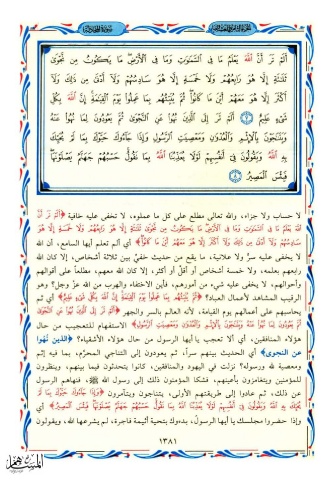 أَلَمْ تَرَ أَنَّ اللَّهَ يَعْلَمُ مَا فِي السَّمَاوَاتِ وَمَا فِي الْأَرْضِ مَا يَكُونُ مِن نَّجْوَى
ثَلَاثَةٍ إِلَّا هُوَ رَابِعُهُمْ وَلَا خَمْسَةٍ إِلَّا هُوَ سَادِسُهُمْ وَلَا أَدْنَى مِن ذَلِكَ وَلَا
أَكْثَرَ إِلَّا هُوَ مَعَهُمْ أَيْنَ مَا كَانُوا ثُمَّ يُنَبِّئُهُم بِمَا عَمِلُوا يَوْمَ الْقِيَامَةِ إِنَّ اللَّهَ بِكُلِّ
شَيْءٍ عَلِيمٌ أَلَمْ تَرَ إِلَى الَّذِينَ نُهُوا عَنِ النَّجْوَى ثُمَّ يَعُودُونَ لِمَا نُهُوا عَنْهُ
وَيَتَنَاجَوْنَ بِالْإِثْمِ وَالْعُدْوَانِ وَمَعْصِيَتِ الرَّسُولِ وَإِذَا جَاءُوكَ حَيَّوْكَ بِمَا لَمْ يُحَيِّكَ
بِهِ اللَّهُ وَيَقُولُونَ فِي أَنفُسِهِمْ لَوْلَا يُعَذِّبُنَا اللَّهُ بِمَا نَقُولُ حَسْبُهُمْ جَهَنَّمُ يَصْلَوْنَهَا
فَبِئْسَ الْمَصِيرُ
لا حساب ولا جزاء، والله تعالى مطلع على كل ما عملوه، لا تخفى عليه خافية ﴿أَلَمْ تَرَ أَنَّ
اللَّهَ يَعْلَمُ مَا فِي السَّمَاوَاتِ وَمَا فِي الْأَرْضِ مَا يَكُونُ مِن نَّجْوَى ثَلَاثَةٍ إِلَّا هُوَ رَابِعُهُمْ وَلَا خَمْسَةٍ إِلَّا هُوَ
سَادِسُهُمْ وَلَا أَدْنَى مِن ذَلِكَ وَلَا أَكْثَرَ إِلَّا هُوَ مَعَهُمْ أَيْنَ مَا كَانُوا﴾ أي ألم تعلم أيها السامع، أن الله
لا يخفى عليه سر ولا علانية، ما يقع من حديث خفيّ بين ثلاثة أشخاص، إلا كان الله
رابعهم بعلمه، ولا خمسة أشخاص أو أقلّ أو أكثر، إلا كان الله معهم، مطلعاً على أقوالهم
وأحوالهم، لا يخفى عليه شيء من أمورهم، فأين الاختفاء والهرب من الله عزّ وجل؟ وهو
الرقيب المشاهد لأعمال العباد؟ ﴿ثُمَّ يُنَبِّئُهُم بِمَا عَمِلُوا يَوْمَ الْقِيَامَةِ إِنَّ اللَّهَ بِكُلِّ شَيْءٍ عَلِيمٌ﴾ أي ثم
يحاسبهم على أعمالهم يوم القيامة، لأنه العالم بالسر والجهر ﴿أَلَمْ تَرَ إِلَى الَّذِينَ نُهُوا عَنِ النَّجْوَى
ثُمَّ يَعُودُونَ لِمَا نُهُوا عَنْهُ وَيَتَنَاجَوْنَ بِالْإِثْمِ وَالْعُدْوَانِ وَمَعْصِيَتِ الرَّسُولِ﴾ الاستفهام للتعجيب من حال
هؤلاء المنافقين، أي ألا تعجب يا أيها الرسول من حال هؤلاء الأشقياء؟ ﴿الذين نُهوا
عن النجوى﴾ أي الحديث بينهم سراً، ثم يعودون إلى التناجي المحرّم، بما فيه إثم
ومعصية لله ورسوله؟ نزلت في اليهود والمنافقين، كانوا يتحدثون فيما بينهم، وينظرون
للمؤمنين ويتغامزون بأعينهم، فشكا المؤمنون ذلك إلى رسول الله ﷺ، فنهاهم الرسول
عن ذلك، ثم عادوا إلى طريقتهم الأولى، يتناجون ويتآمرون ﴿وَإِذَا جَاءُوكَ حَيَّوْكَ بِمَا لَمْ
يُحَيِّكَ بِهِ اللَّهُ وَيَقُولُونَ فِي أَنفُسِهِمْ لَوْلَا يُعَذِّبُنَا اللَّهُ بِمَا نَقُولُ حَسْبُهُمْ جَهَنَّمُ يَصْلَوْنَهَا فَبِئْسَ الْمَصِيرُ﴾ أي
وإذا حضروا مجلسك يا أيها الرسول، بدءوك بتحية أثيمة فاجرة، لم يشرعها الله، ويقولون
١٣٨١